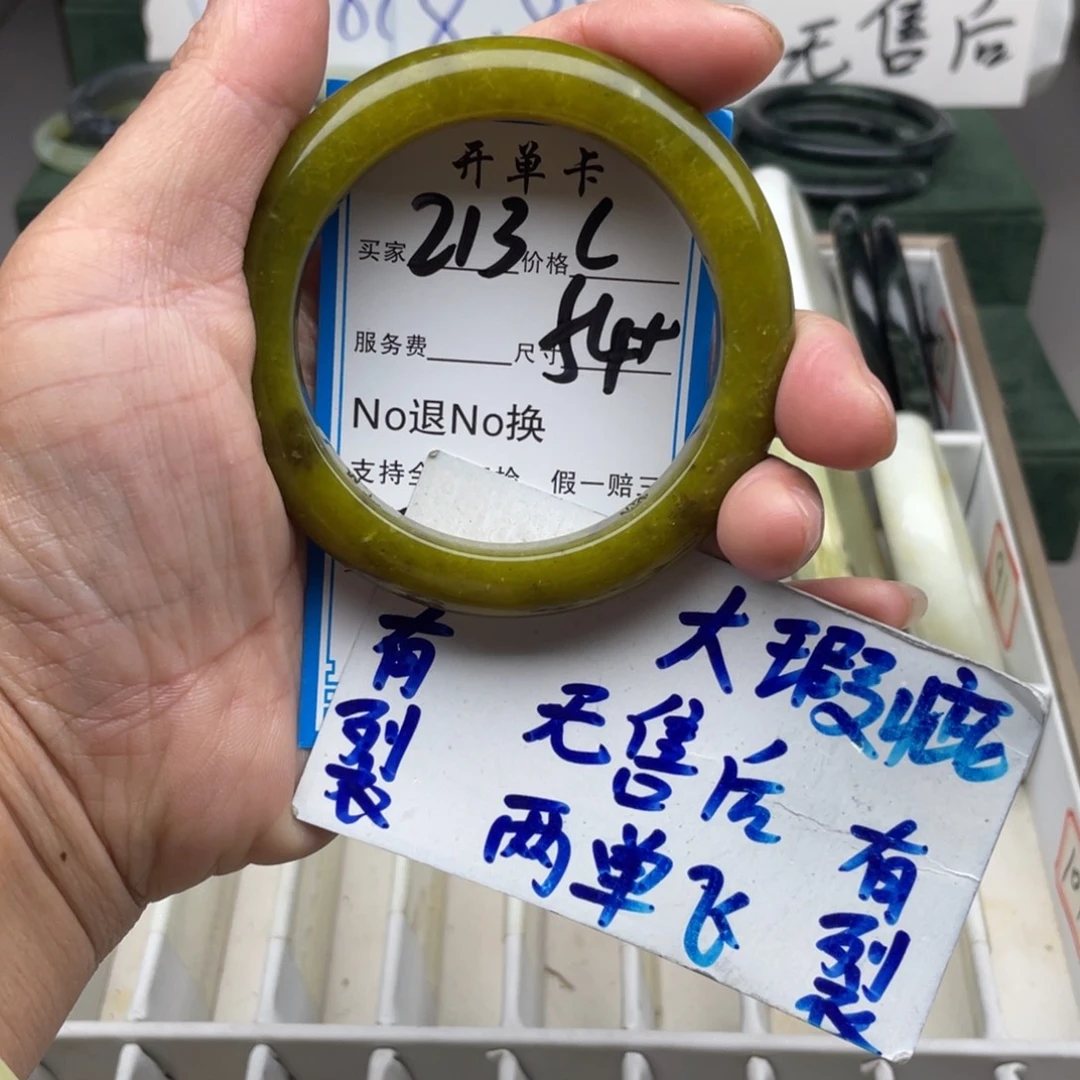 无售后
开单卡
买家 213 价格 L
服务费 尺寸 54+
No退No换
支持全 检 假一赔三
有裂
大瑕疵
无售后
两单飞
有裂